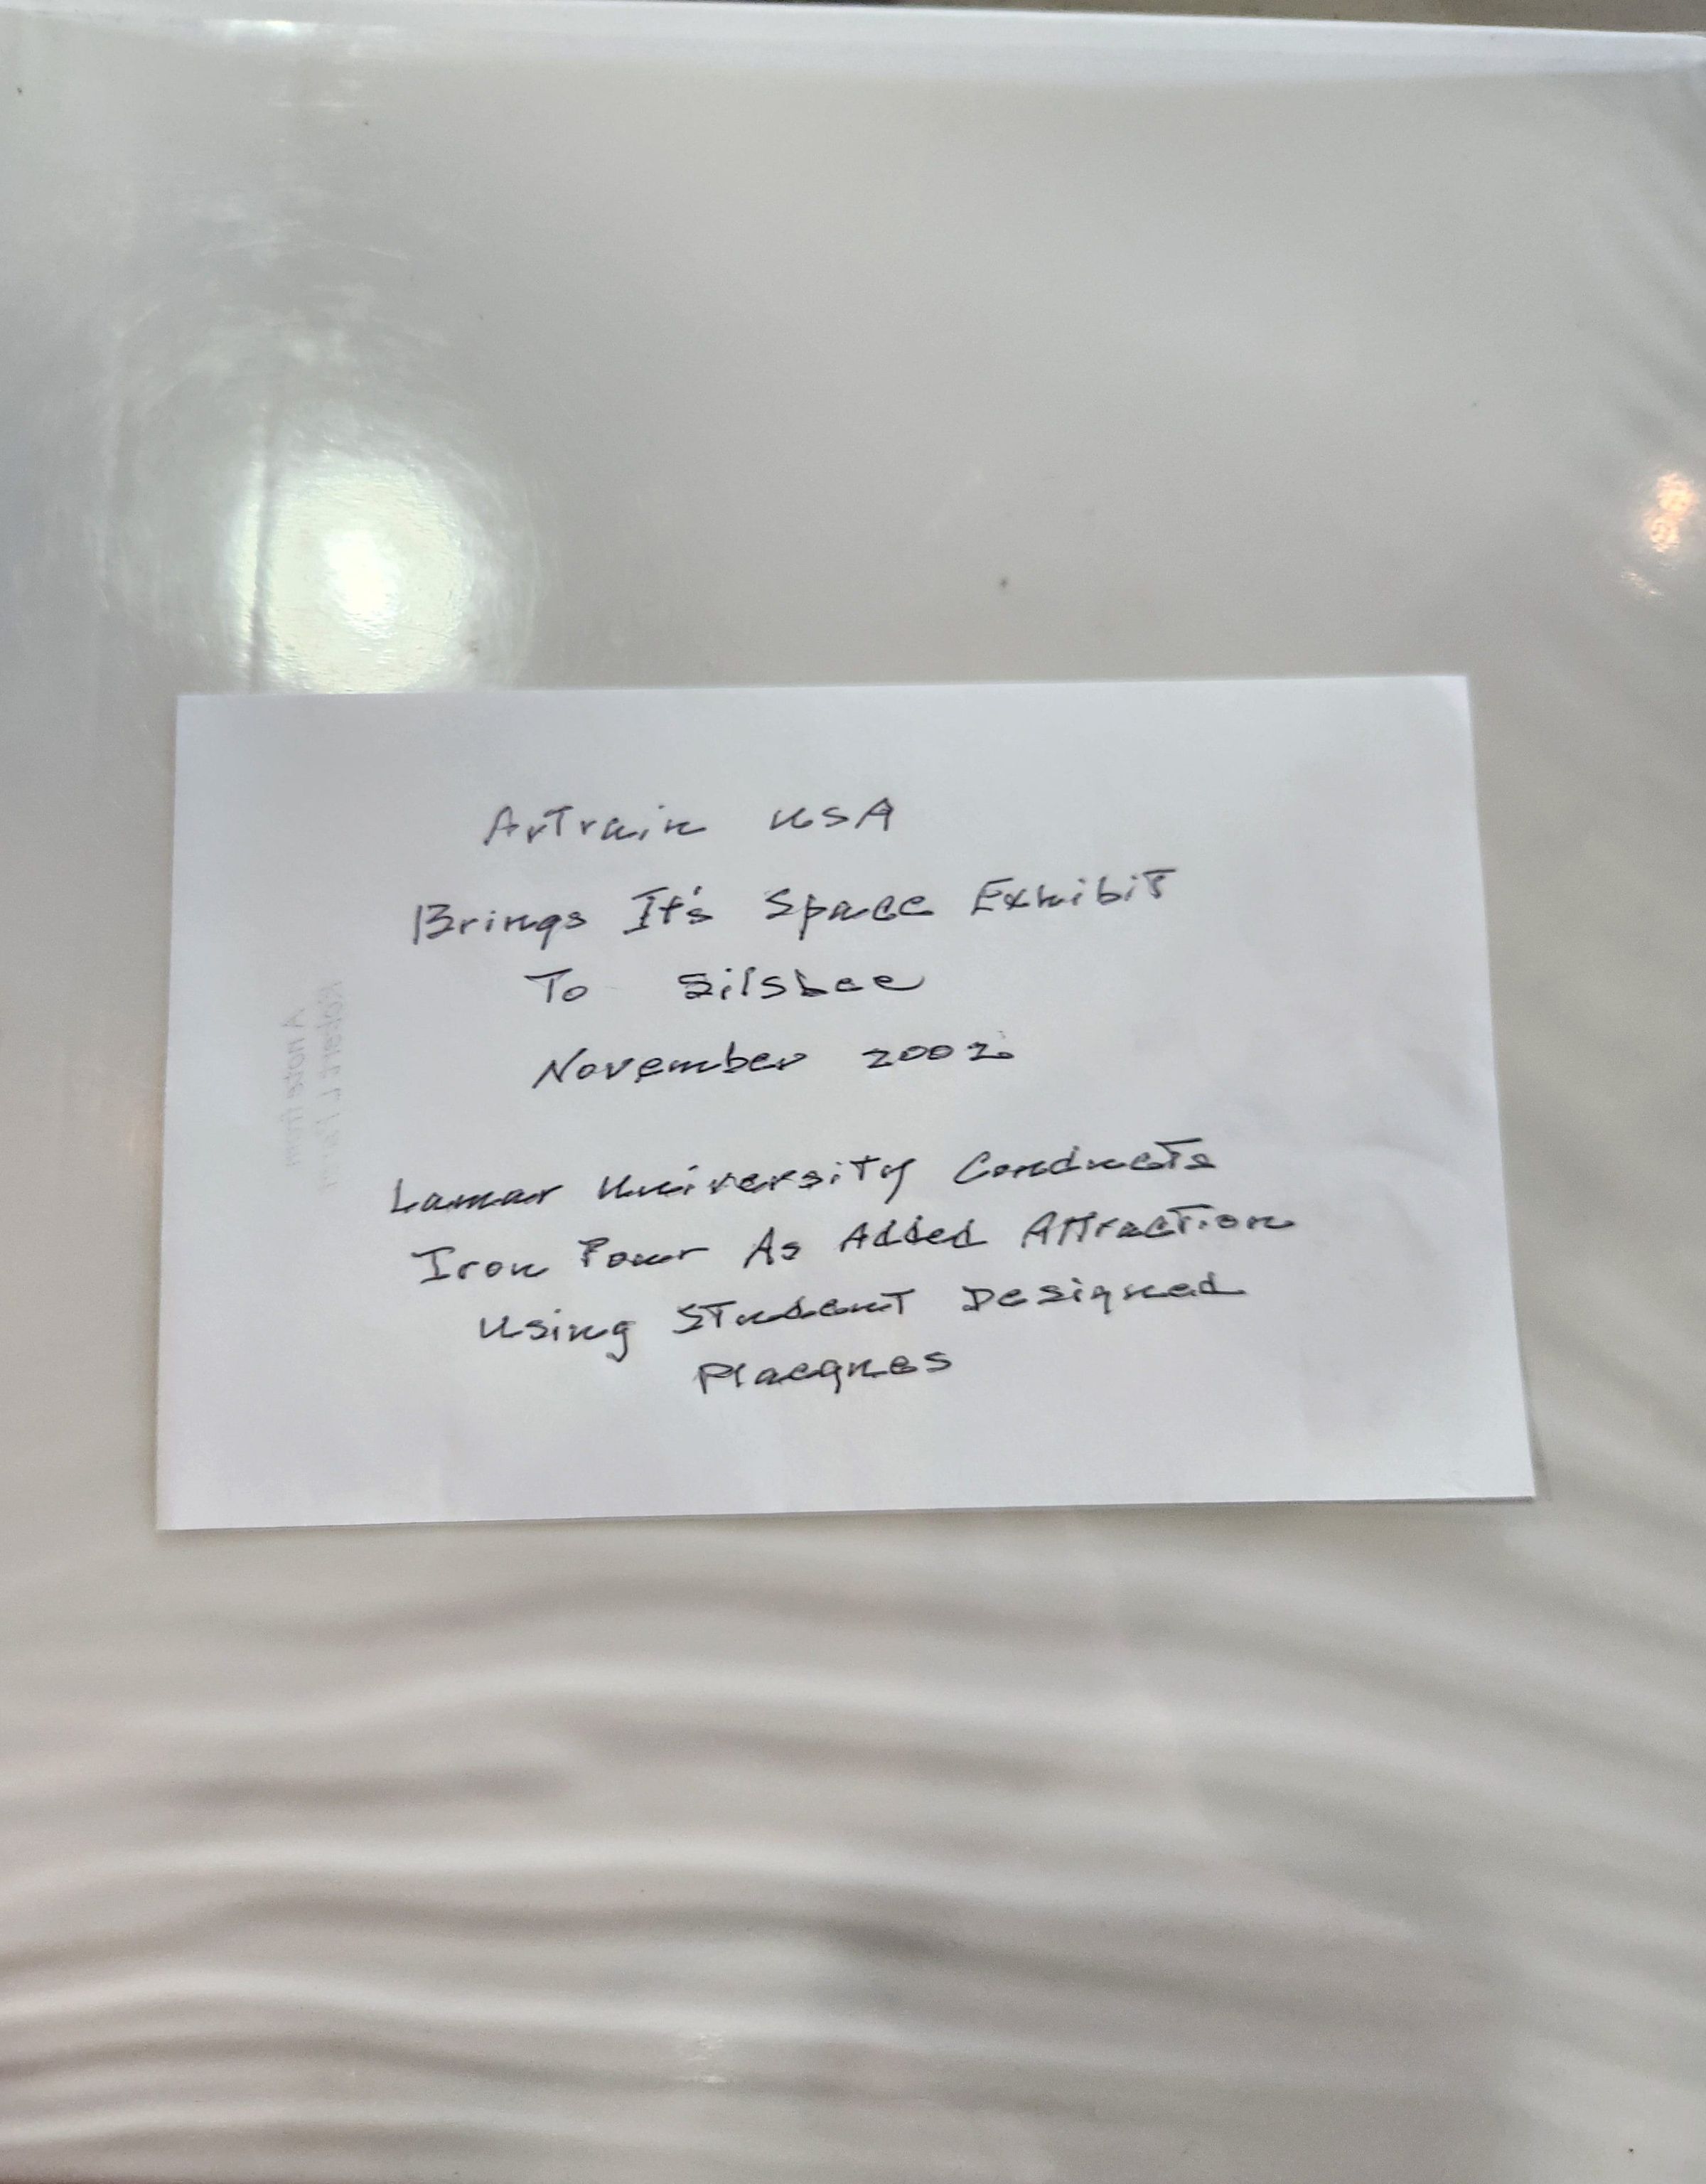 ArTrain USA
Brings It's Space Exhibit
To Silsbee
November 2002
Lamar University Conducts
Iron Pour As Added Attraction
Using Student Designed
Placques
A note from
Robert L.